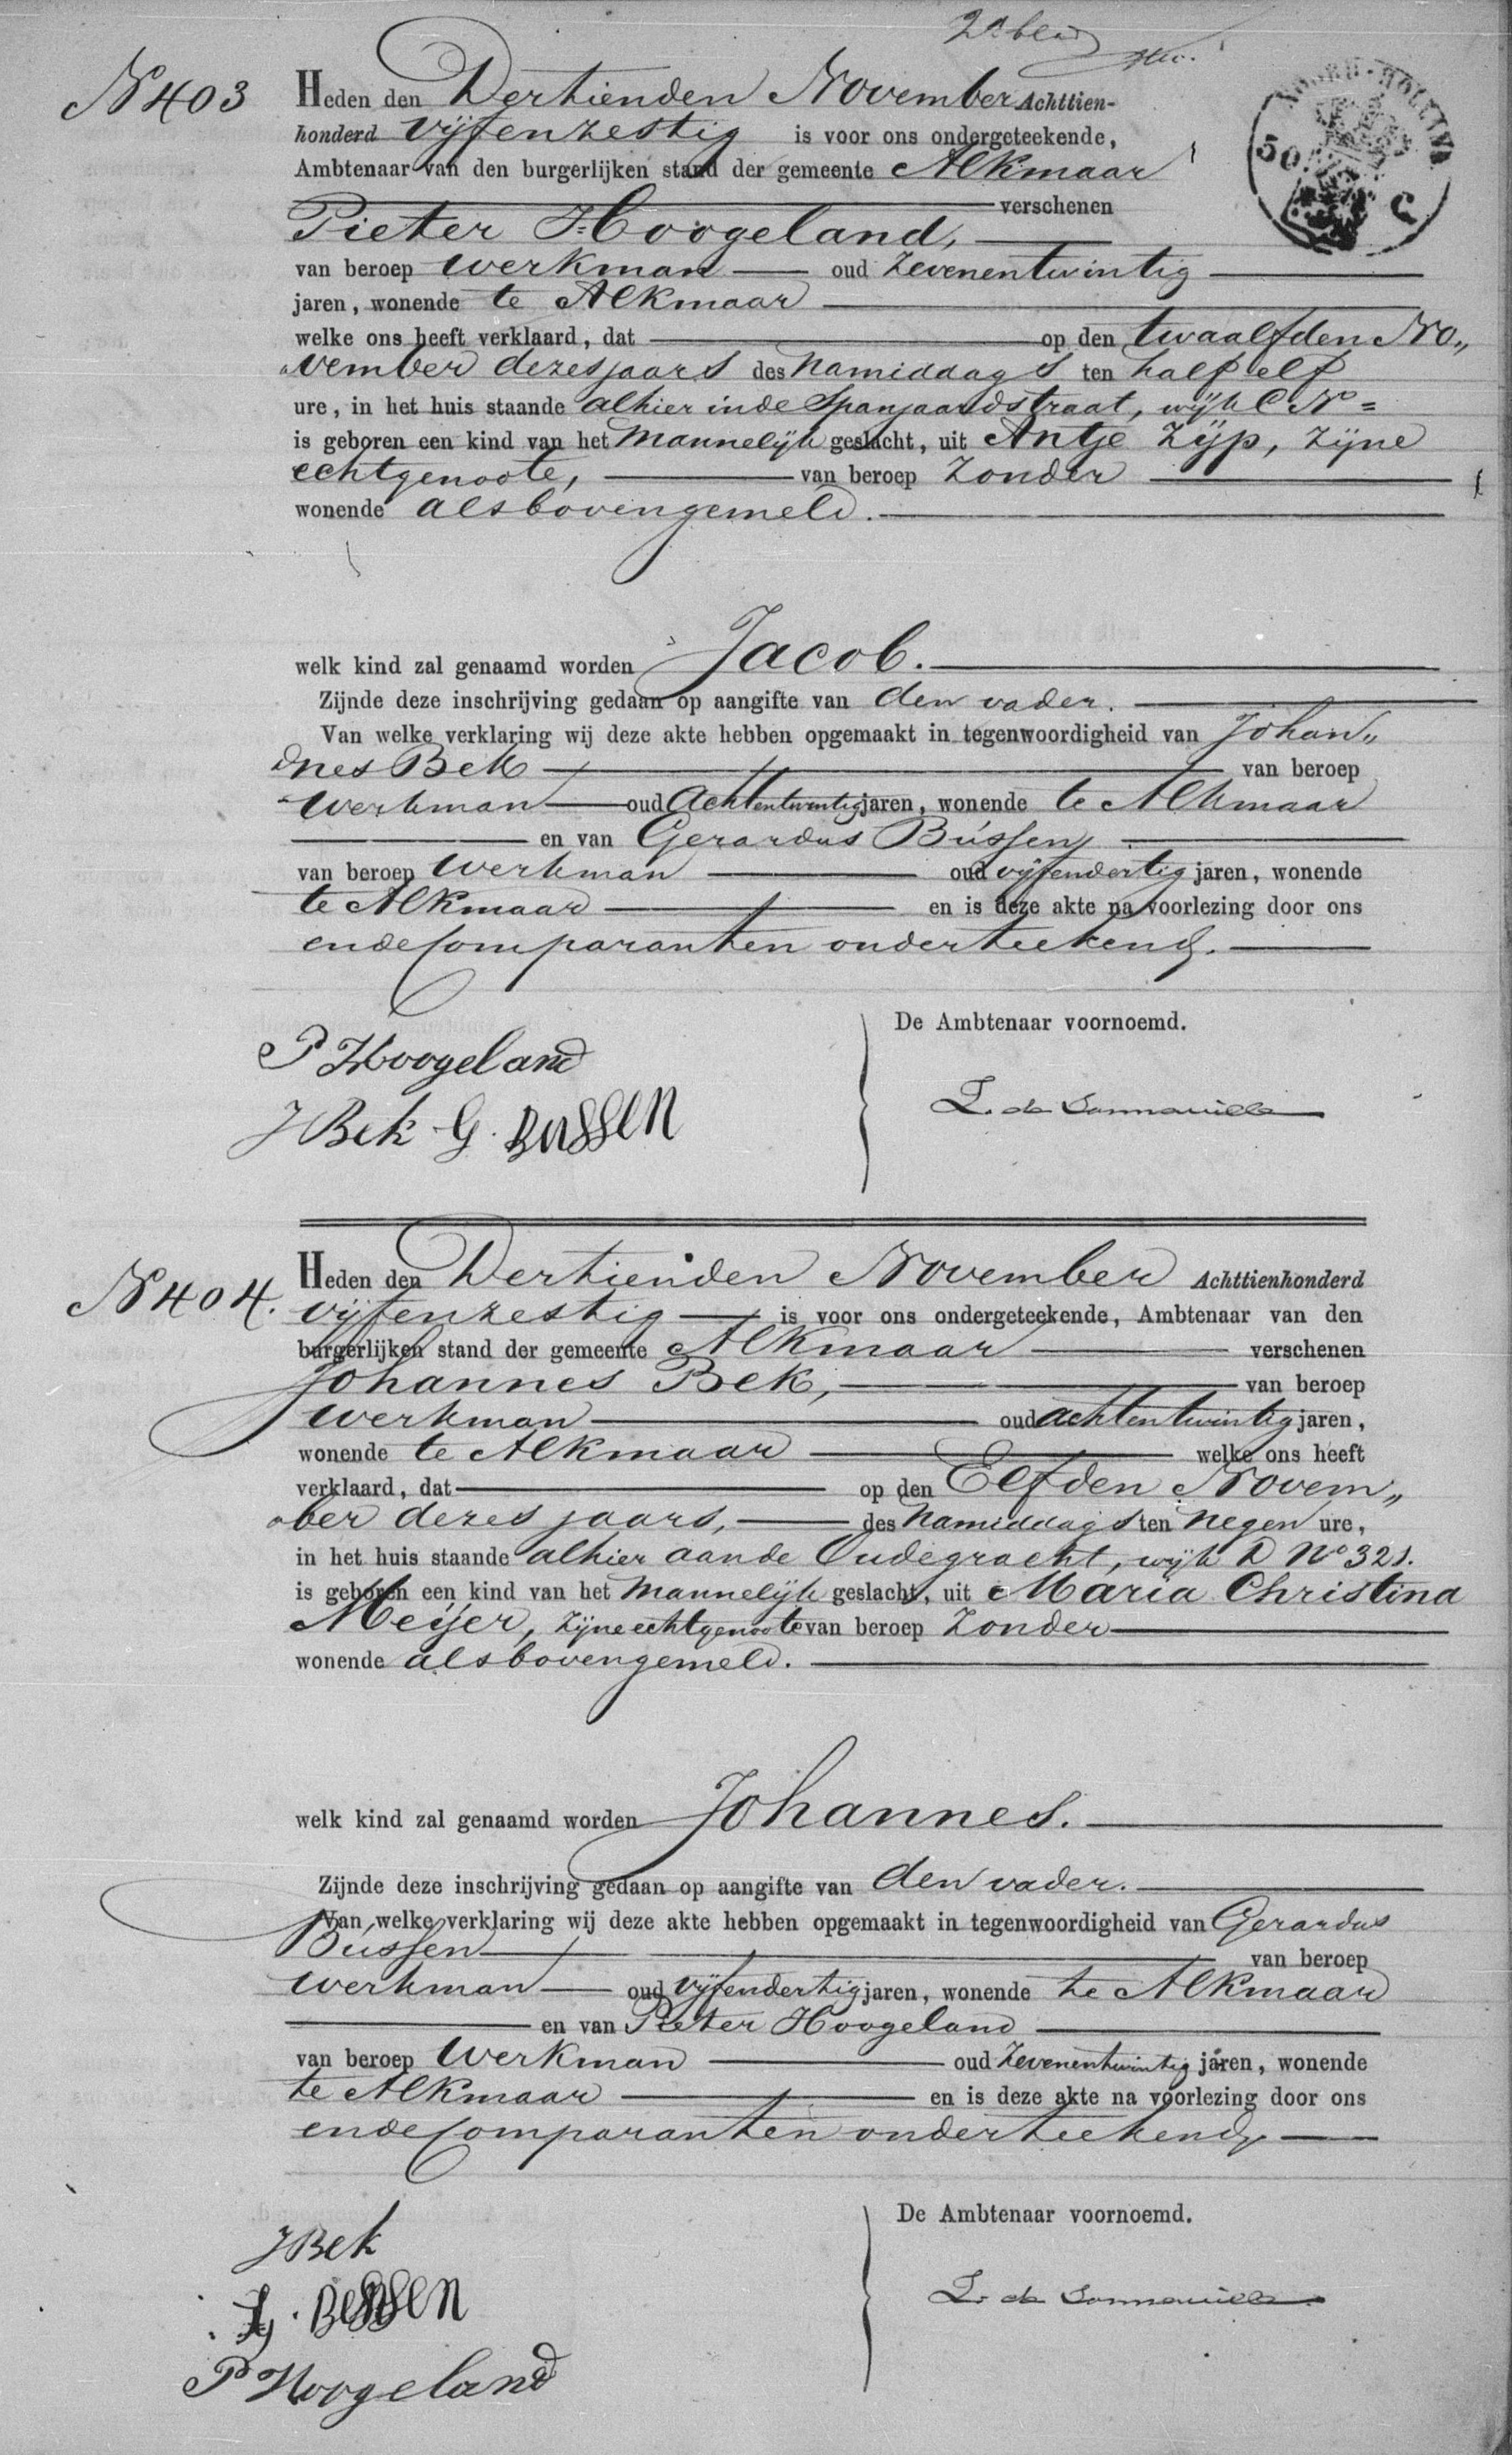 2e blad
No 403
Heden den Dertienden November Achttien-
honderd vijfenzestig is voor ons ondergeteekende,
Ambtenaar van den burgerlijken stand der gemeente Alkmaar
verschenen
Pieter Hoogeland,
van beroep werkman oud zevenentwintig
jaren, wonende te Alkmaar
welke ons heeft verklaard, dat op den twaalfden No„
„vember dezes jaars des namiddags ten half elf
ure, in het huis staande alhier in de Spanjaardstraat, wijk C No =
is geboren een kind van het mannelijk geslacht, uit Antje Zijp, zijne
echtgenoote, van beroep zonder
wonende als bovengemeld.
welk kind zal genaamd worden Jacob.
Zijnde deze inschrijving gedaan op aangifte van den vader.
Van welke verklaring wij deze akte hebben opgemaakt in tegenwoordigheid van Johan„
„nes Bek van beroep
werkman oud achtentwintig jaren, wonende te Alkmaar
en van Gerardus Bússen,
van beroep werkman oud vijfendertig jaren, wonende
te Alkmaar en is deze akte na voorlezing door ons
en de Comparanten onderteekend.
De Ambtenaar voornoemd.
P Hoogeland
J Bek G. Bussen
L. de Sonnaville
No 404.
Heden den Dertienden November Achttienhonderd
vijfenzestig is voor ons ondergeteekende, Ambtenaar van den
burgerlijken stand der gemeente Alkmaar verschenen
Johannes Bek, van beroep
werkman oud achtentwintig jaren,
wonende te Alkmaar welke ons heeft
verklaard, dat op den Elfden Novem„
„ber dezes jaars, des namiddags ten negen ure,
in het huis staande alhier aan de Oudegracht, wijk D No 321.
is geboren een kind van het mannelijk geslacht, uit Maria Christina
Meijer, zijne echtgenoote van beroep zonder
wonende als bovengemeld.
welk kind zal genaamd worden Johannes.
Zijnde deze inschrijving gedaan op aangifte van den vader.
Van welke verklaring wij deze akte hebben opgemaakt in tegenwoordigheid van Gerardus
Bússen van beroep
werkman oud vijfendertig jaren, wonende te Alkmaar
en van Pieter Hoogeland
van beroep werkman oud zevenentwintig jaren, wonende
te Alkmaar en is deze akte na voorlezing door ons
en de Comparanten onderteekend.
De Ambtenaar voornoemd.
J Bek
G. Bussen
L. de Sonnaville
P Hoogeland